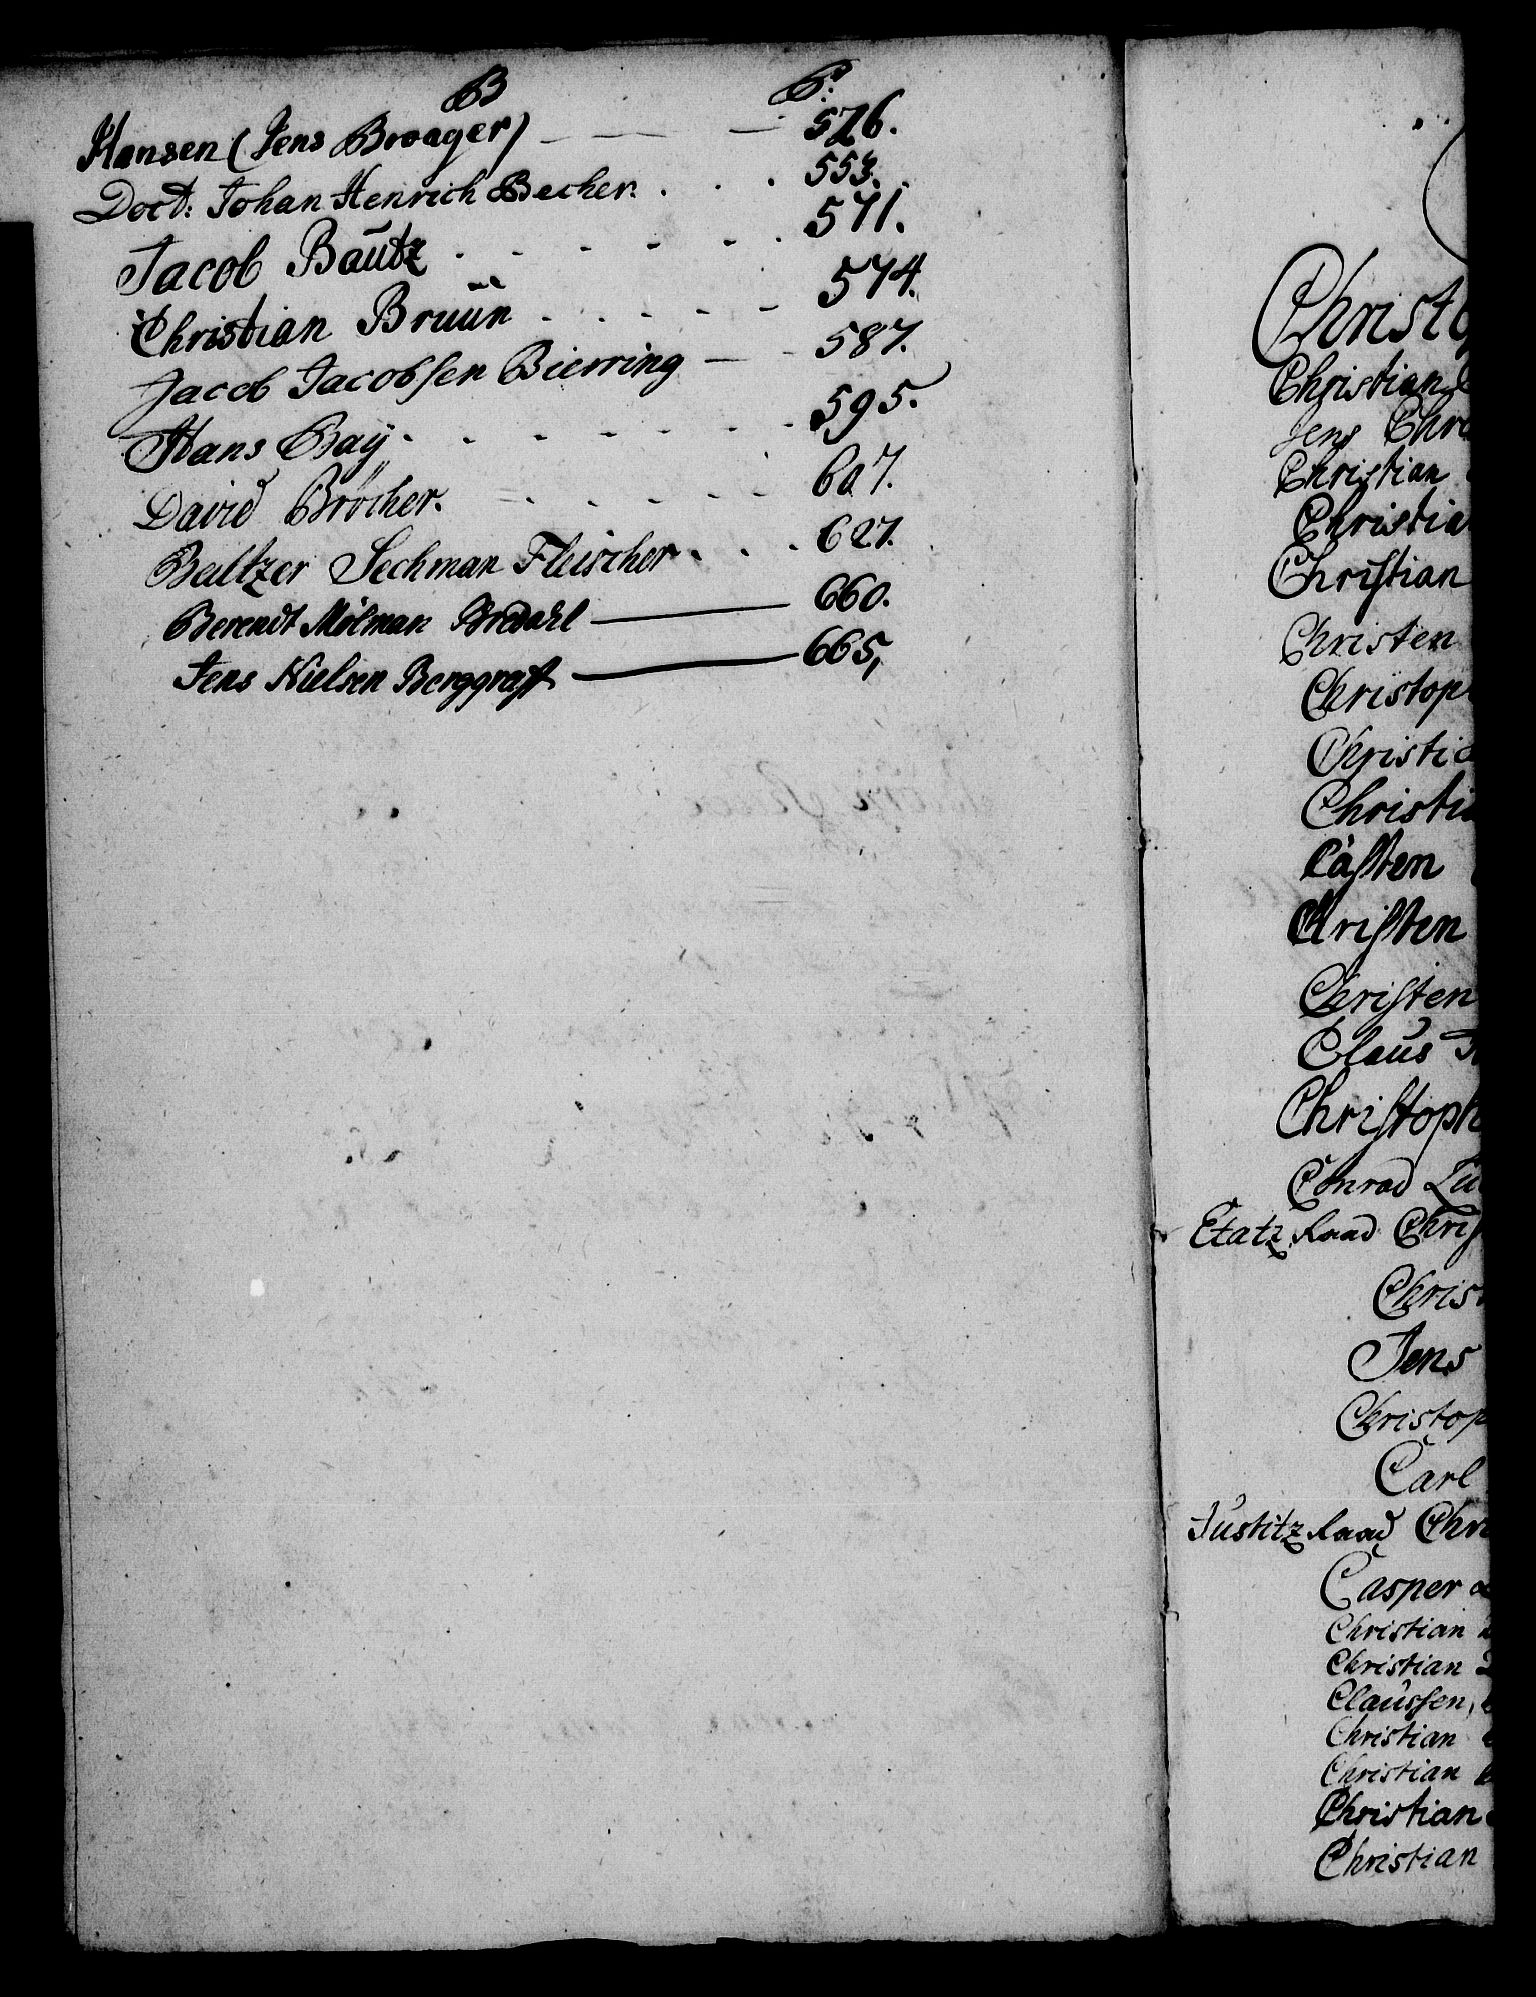 B P:
Hansen (Jens Broager) — — — 526.
Doct: Johan Henrich Becher. . . . 553.
Jacob Bautz . - - - - - . 571.
Christian Bruun . . . - - - 574.
Jacob Jacobsen Bierring — - 587.
Hans Baÿ . - - - - - - 595.
David Bröcher. - - - - - 607.
Baltzer Sechman Fleischer . . . 627.
Berendt Mölman Bredahl — 660.
Jens Nielsen Berggraff — 665,
Christ
Christian
Jens Chri
Christian
Christia
Christian
Christen
Christop
Christia
Christi
Casten
Christen
Christen
Claus
Christoph
Conrad Lu
Etatz Raad Chris
Christ
Jens
Christop
Carl
Justitz Raad Chri
Casper
Christian
Christian
Claussen,
Christian
Christian
Christian
Christian